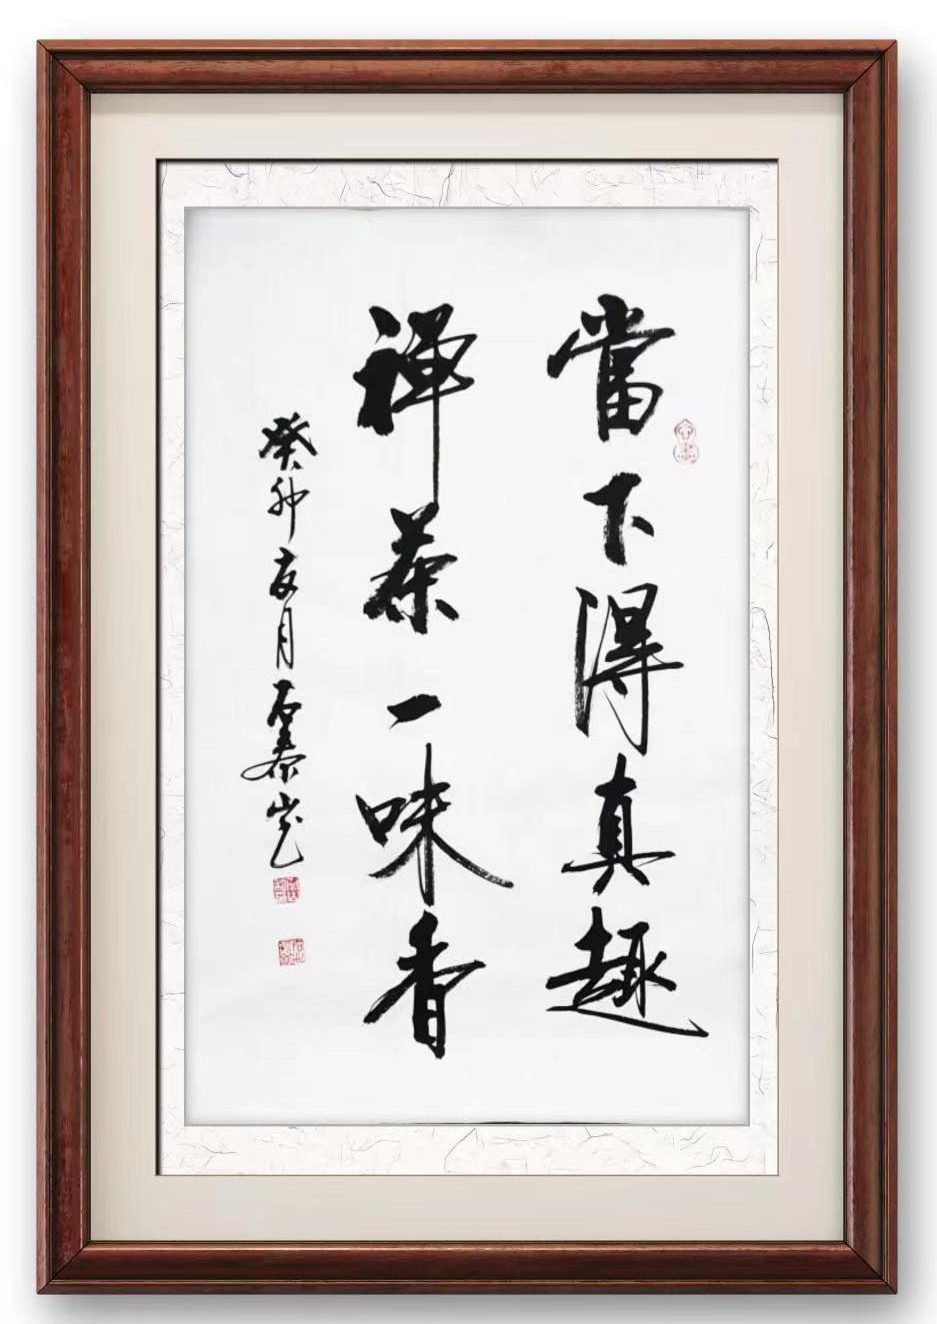 當下得真趣
禪茶一味香
癸卯亥月石泰岩